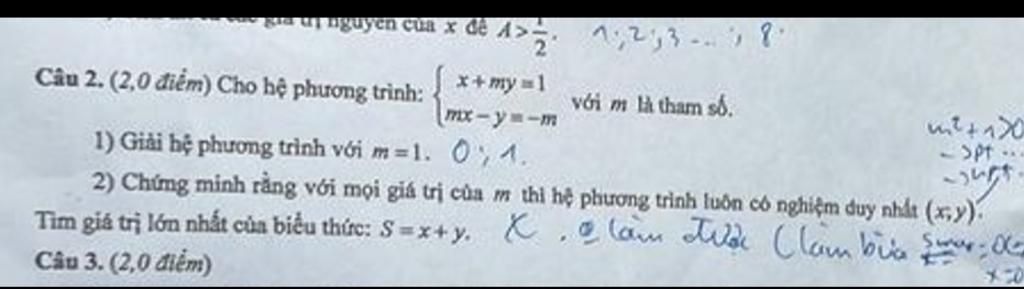 giá trị nguyên của x để A > 1/2. 1; 2; 3 ...; 8.
Câu 2. (2,0 điểm) Cho hệ phương trình: { x + my = 1
mx − y = −m với m là tham số.
m² + 1 > 0
1) Giải hệ phương trình với m = 1. 0; 1.
2) Chứng minh rằng với mọi giá trị của m thì hệ phương trình luôn có nghiệm duy nhất (x; y).
Tìm giá trị lớn nhất của biểu thức: S = x + y. X. làm được (làm bừa
x=0
Câu 3. (2,0 điểm)